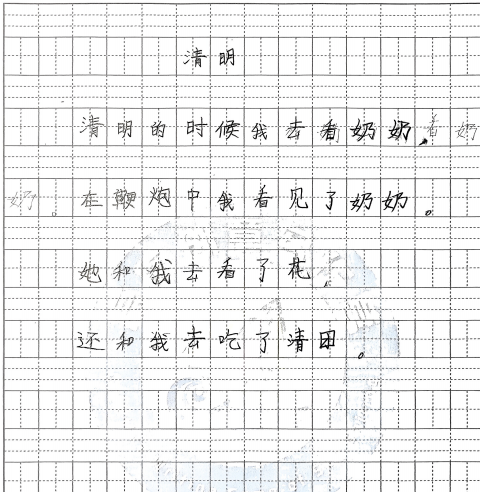 清明
清明的时候我去看奶奶，看奶
奶。在鞭炮中我看见了奶奶。
她和我去看了花，
还和我去吃了清团。